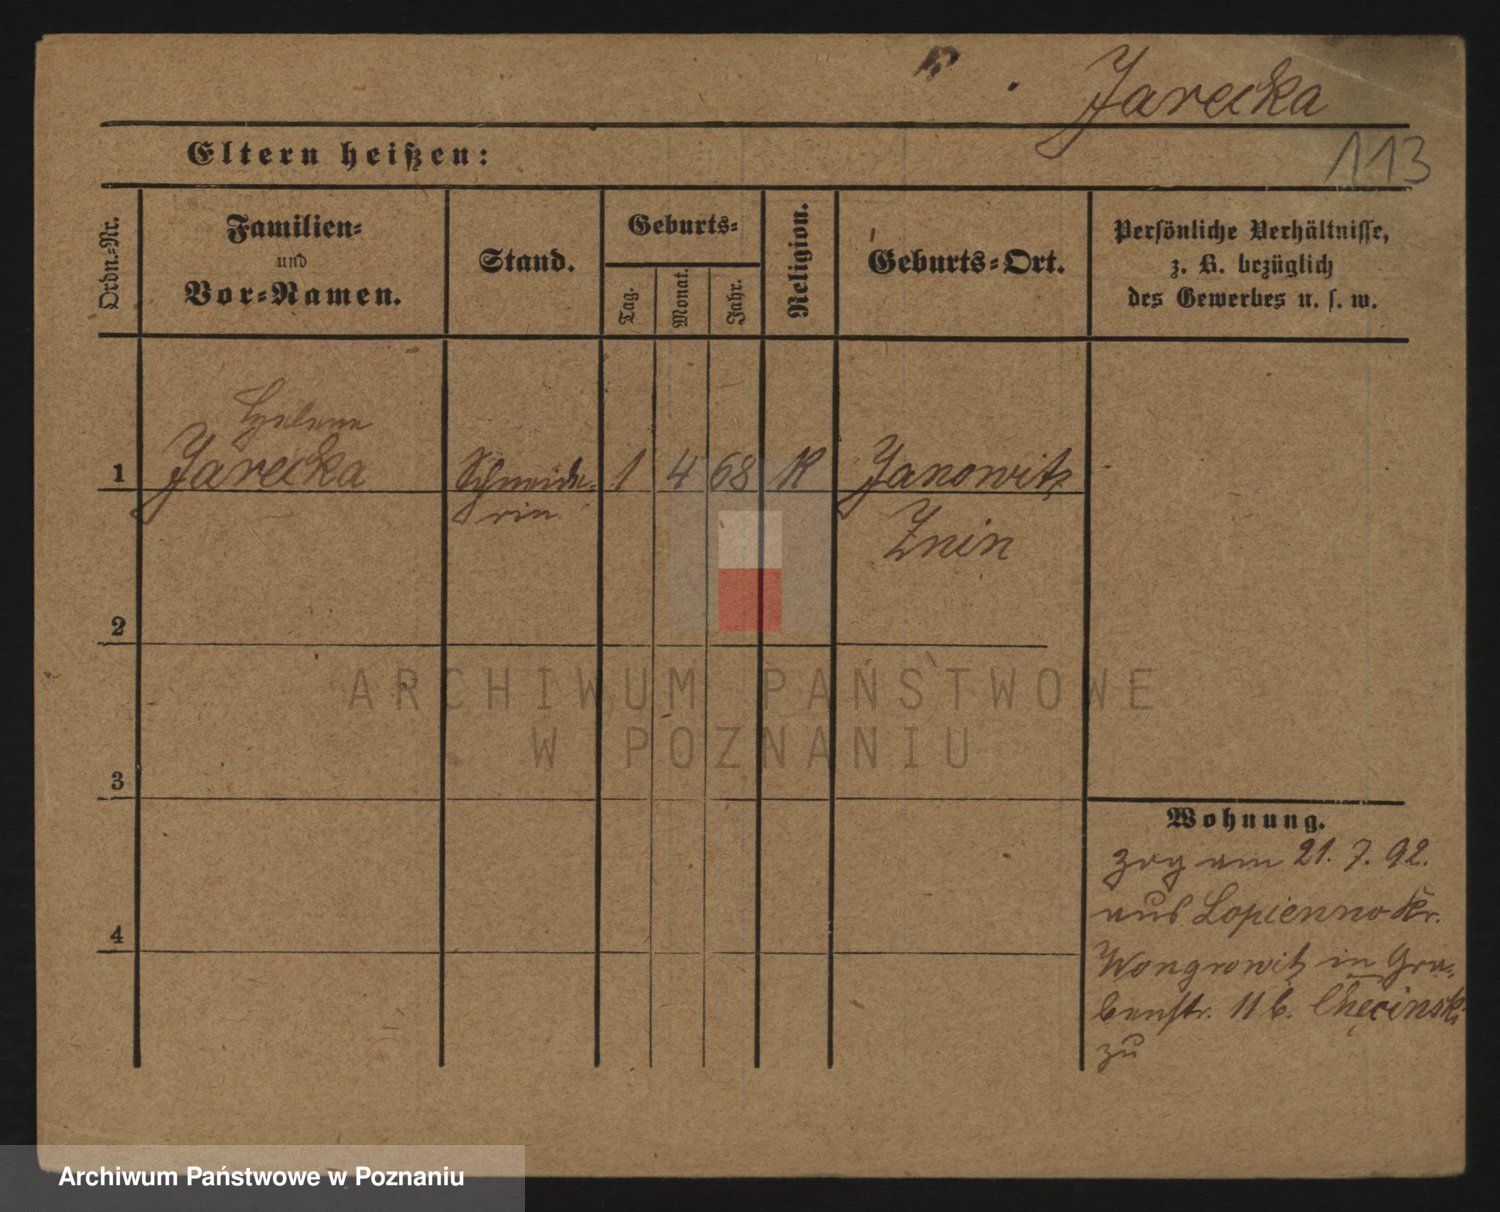 Jarecka
113
Eltern heißen:
Ordn.-Nr.
Familien-
und
Vor-Namen.
Stand.
Geburts-
Tag.
Monat.
Jahr.
Religion.
Geburts-Ort.
Persönliche Verhältnisse,
z. B. bezüglich
des Gewerbes u. s. w.
Helena
1 Jarecka Schneide- 1 4 68 K Janowitz
rin Znin
2
3
4
Wohnung.
zog am 21. 7. 92.
aus Lopienno Kr.
Wongrowitz in Gra-
benstr. 11 b. Chęcinski
zu
ARCHIWUM PAŃSTWOWE
W POZNANIU
Archiwum Państwowe w Poznaniu